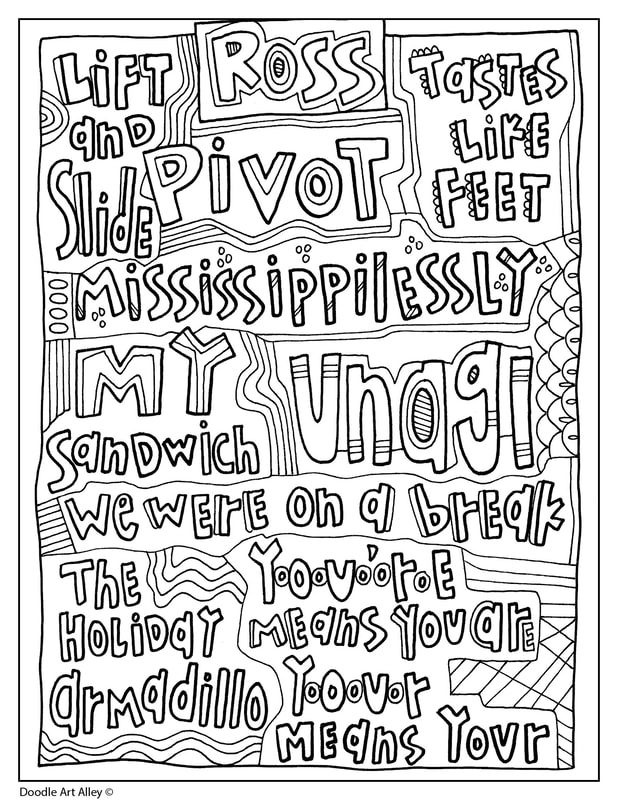 Ross
Lift
and
Slide
Pivot
Tastes
Like
Feet
Mississippilessly
My
Sandwich
Unagi
We were on a break
The
Holiday
Armadillo
You're
means you are
Your
means your
Doodle Art Alley ©